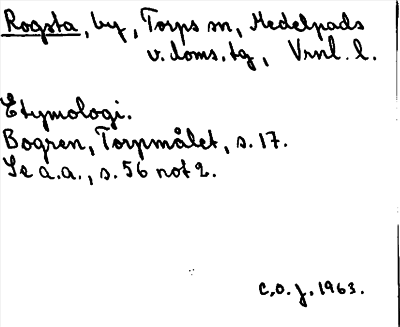 Rogsta, by, Torps sn, Medelpads
v. doms. tg, Vrnl. l.
Etymologi.
Bogren, Torpmålet, s. 17.
Se a.a., s. 56 not 2.
C.O. J. 1963.